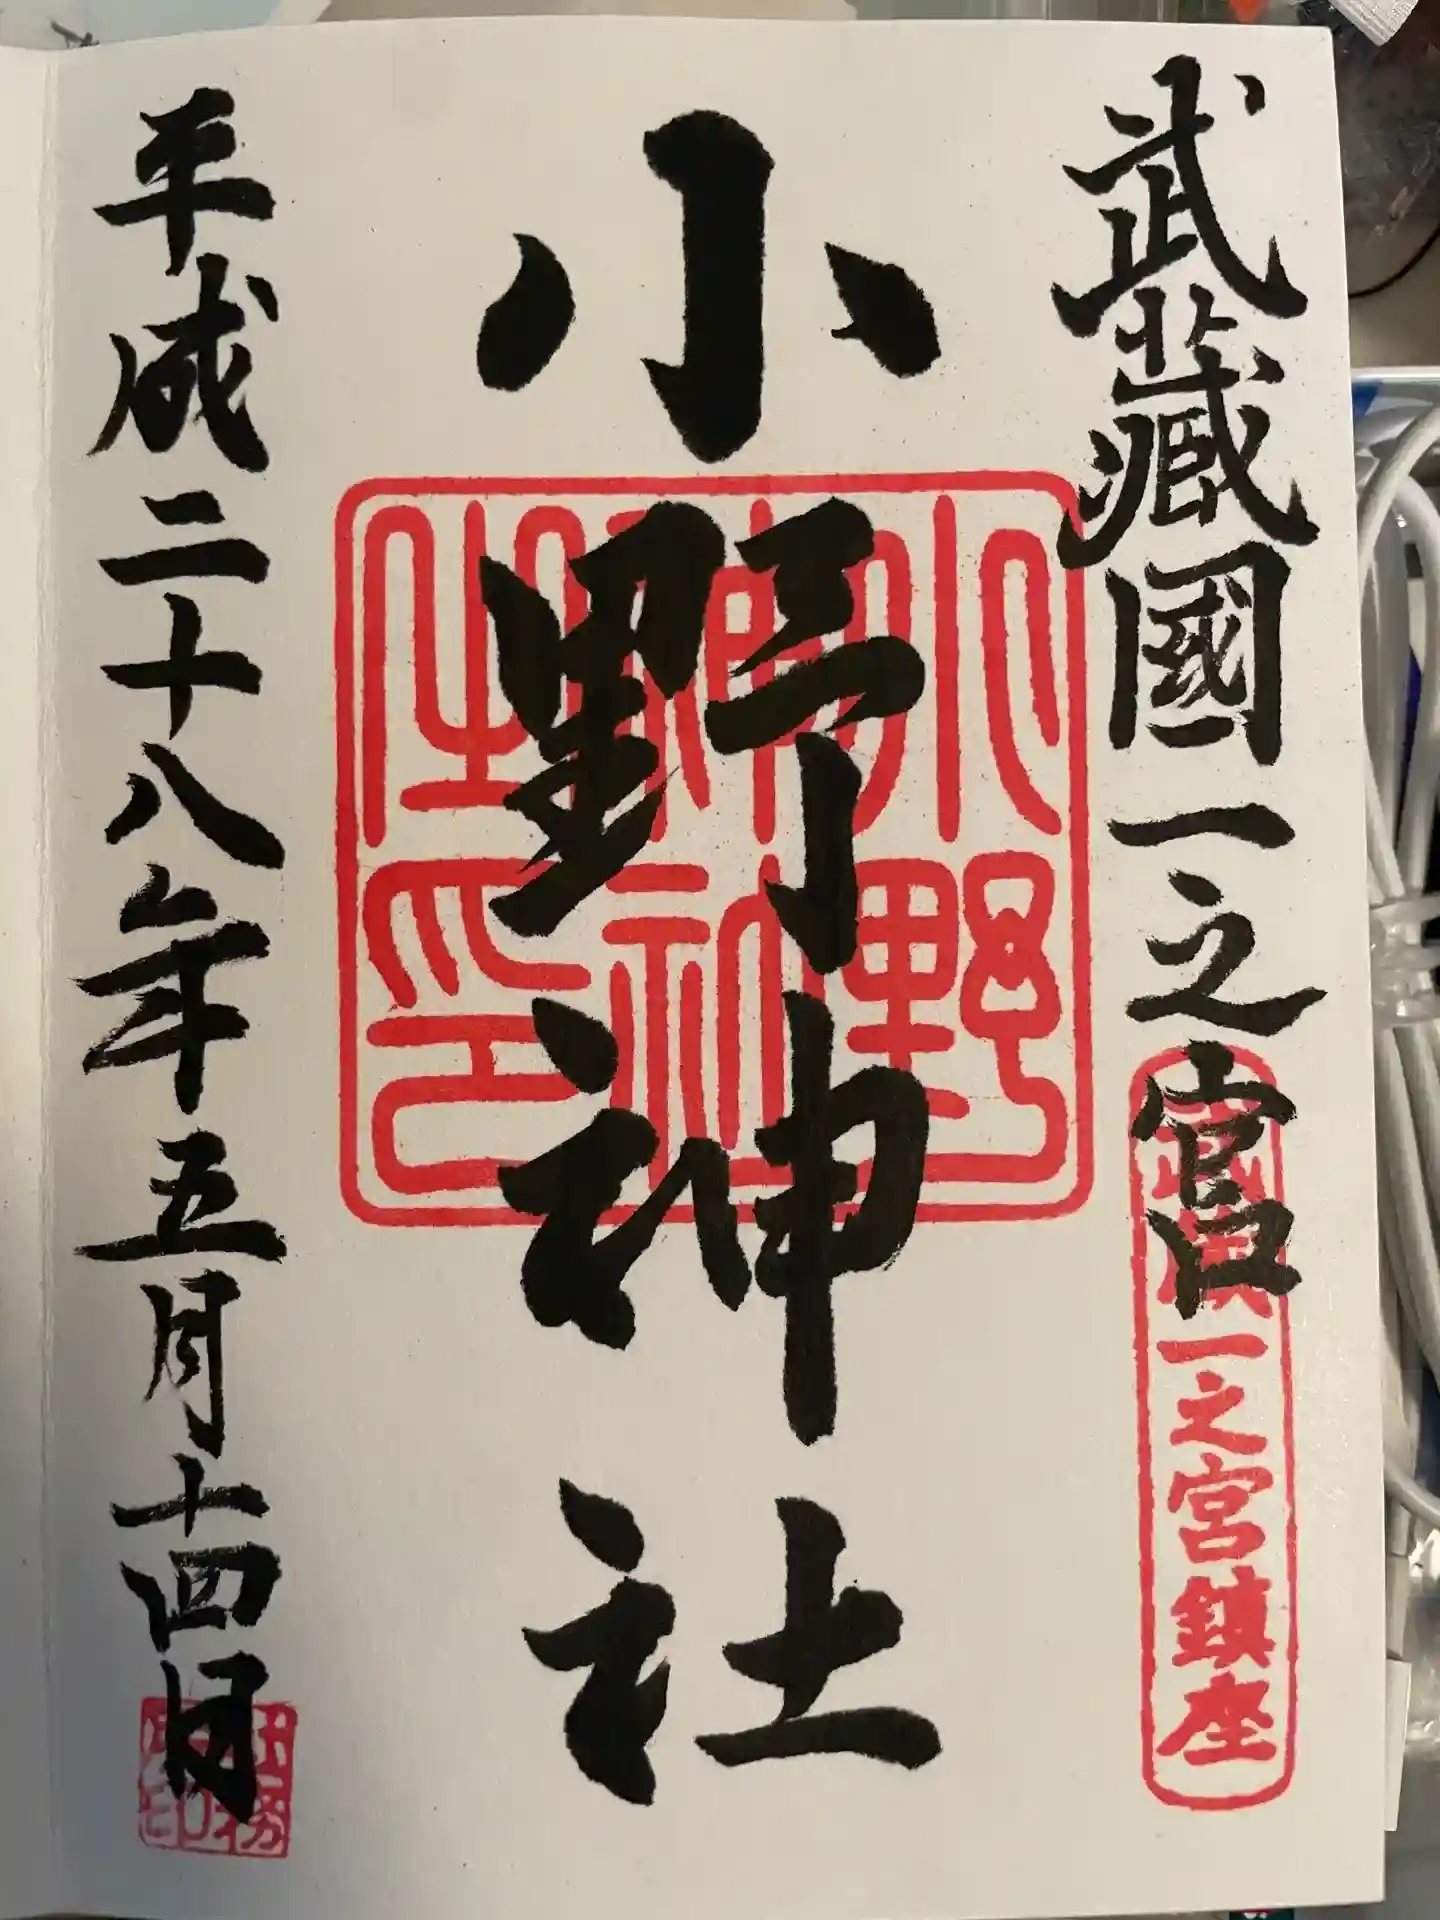 武蔵國一之宮
武蔵國一之宮鎮座
小野神社
小野神社之印
平成二十八年五月十四日